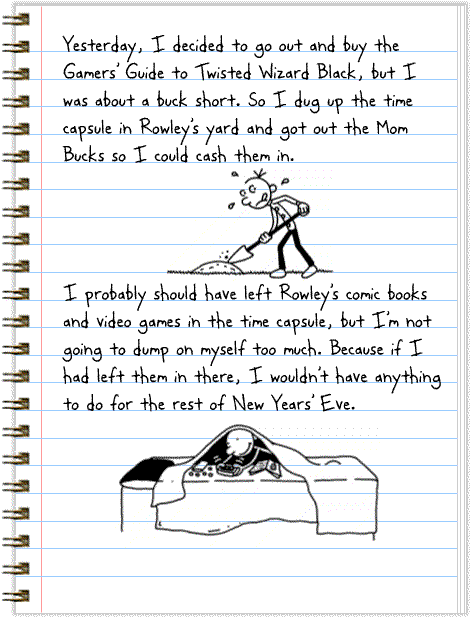 Yesterday, I decided to go out and buy the
Gamers' Guide to Twisted Wizard Black, but I
was about a buck short. So I dug up the time
capsule in Rowley's yard and got out the Mom
Bucks so I could cash them in.
I probably should have left Rowley's comic books
and video games in the time capsule, but I'm not
going to dump on myself too much. Because if I
had left them in there, I wouldn't have anything
to do for the rest of New Years' Eve.